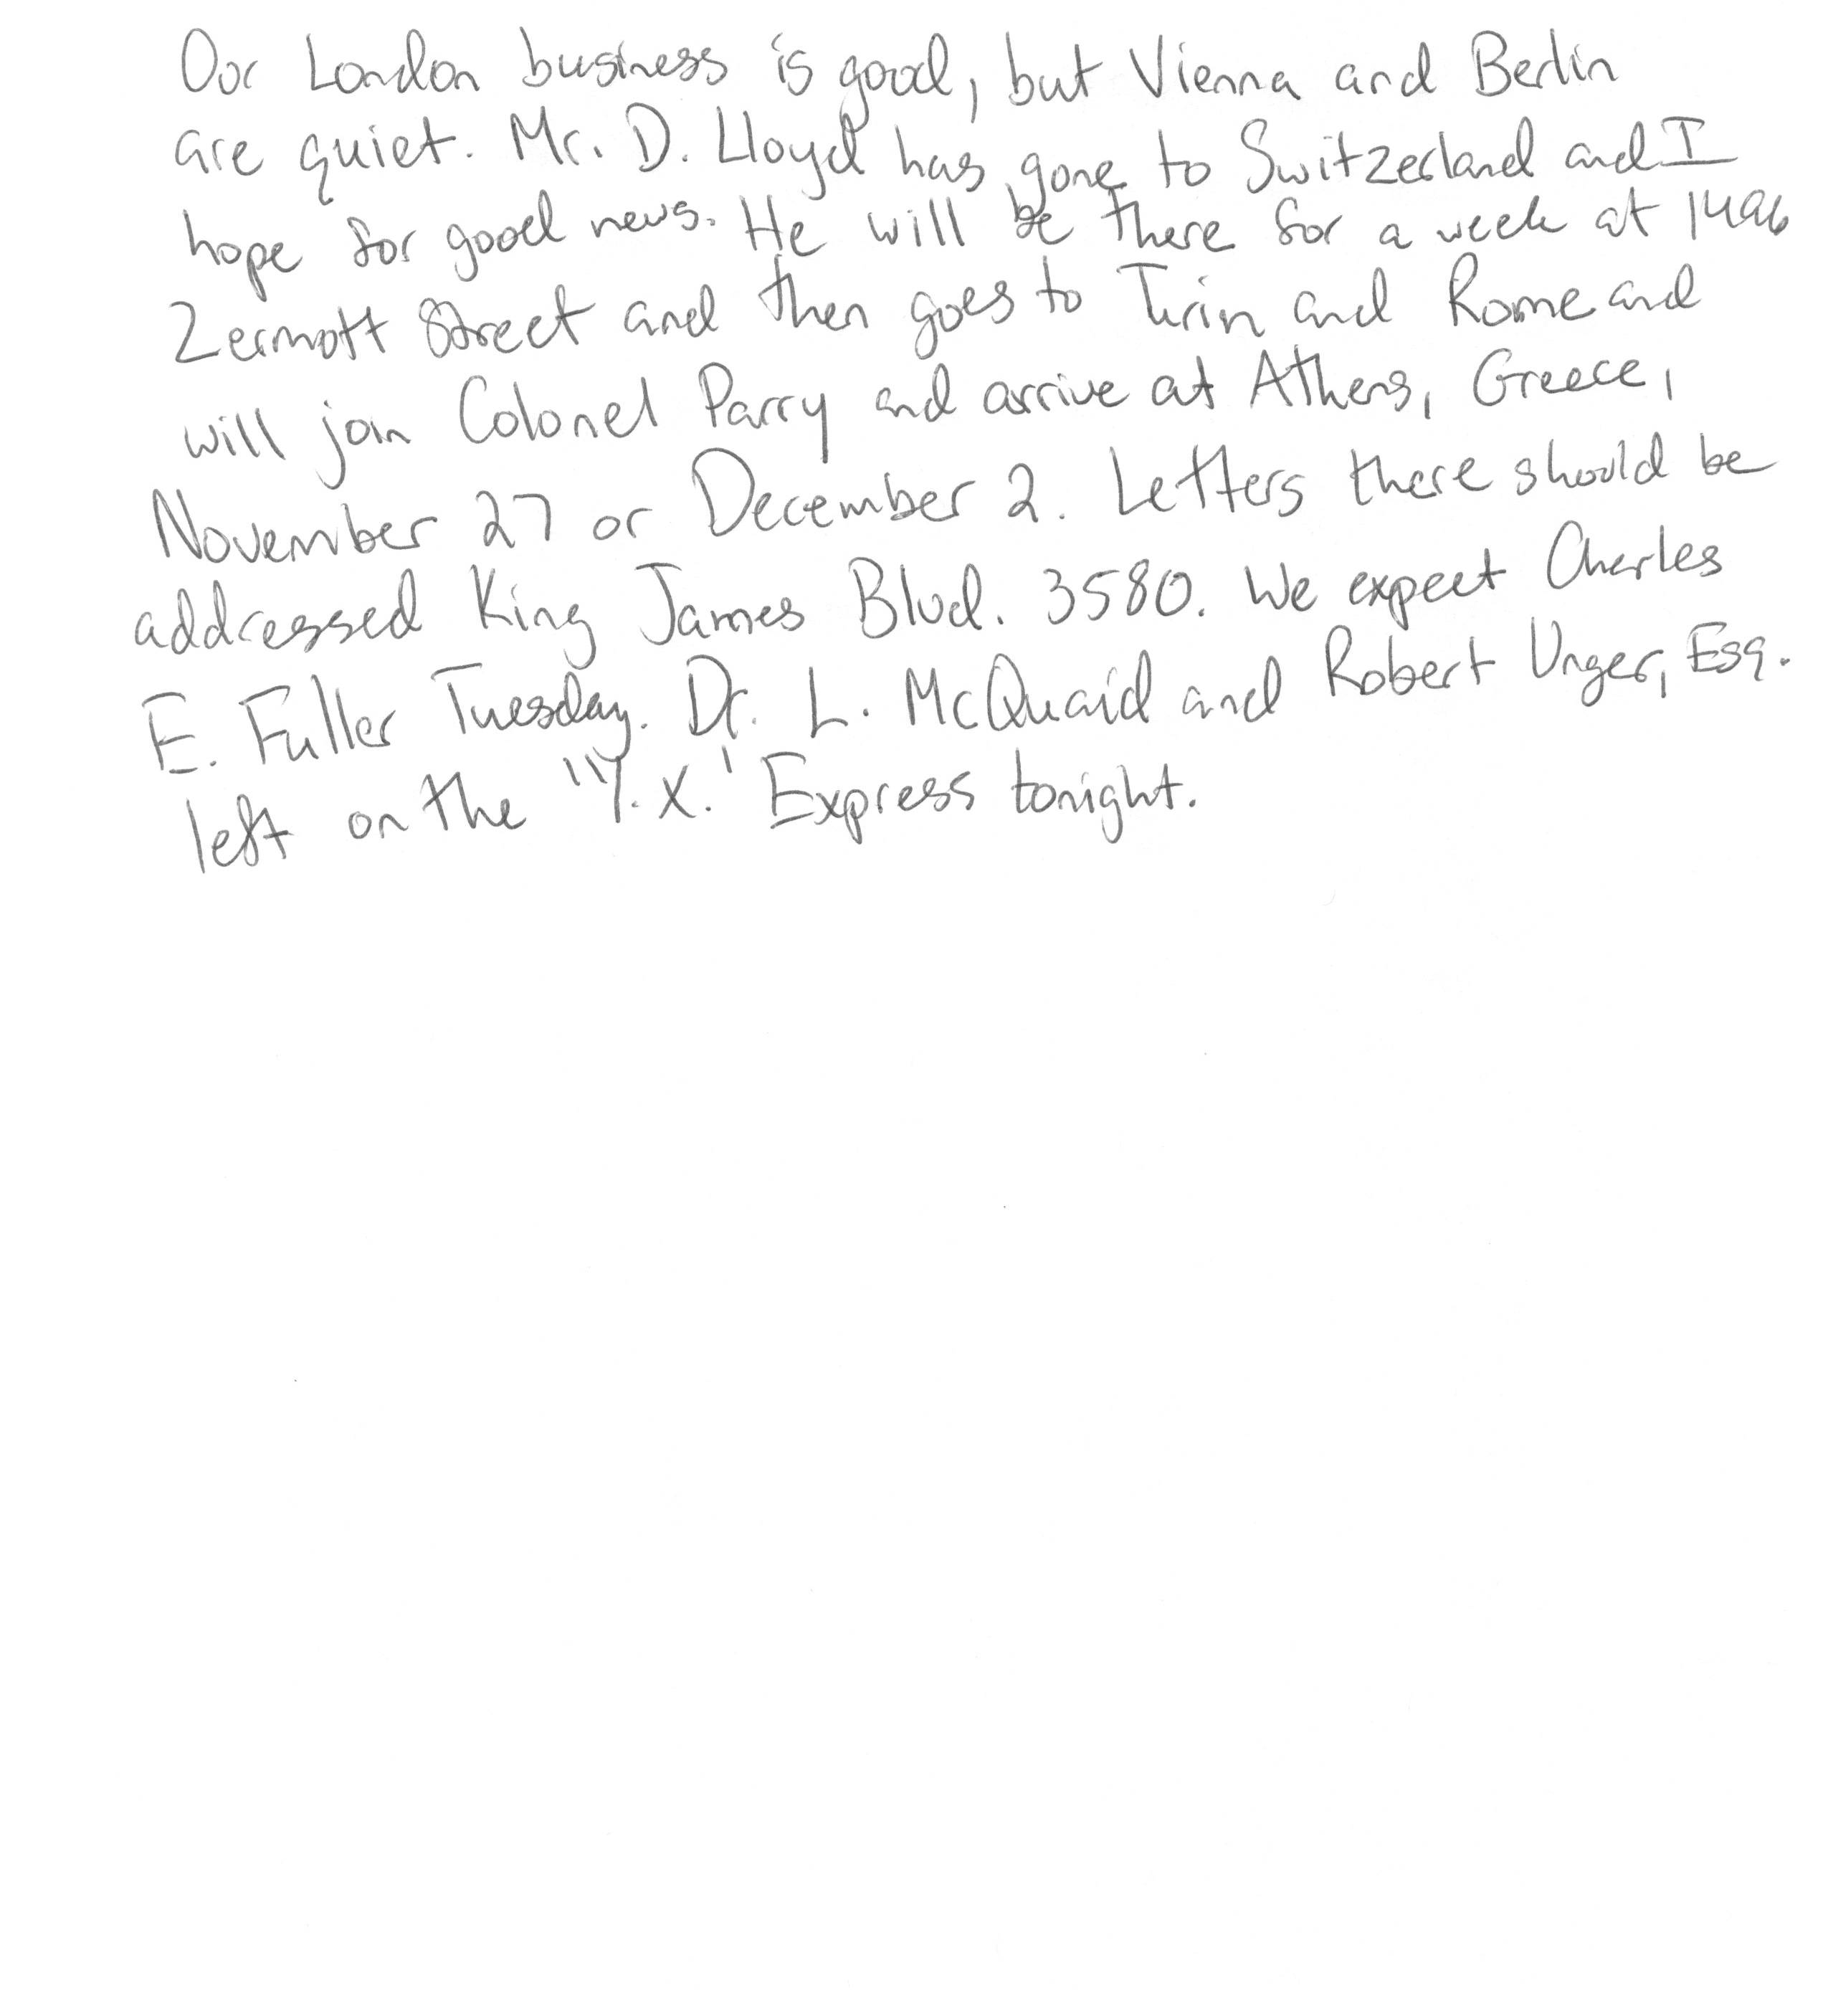 Our London business is good, but Vienna and Berlin
are quiet. Mr. D. Lloyd has gone to Switzerland and I
hope for good news. He will be there for a week at 1496
Zermott Street and then goes to Turin and Rome and
will join Colonel Parry and arrive at Athens, Greece,
November 27 or December 2. Letters there should be
addressed King James Blvd. 3580. We expect Charles
E. Fuller Tuesday. Dr. L. McQuaid and Robert Unger, Esq.
left on the "Y.X.' Express tonight.